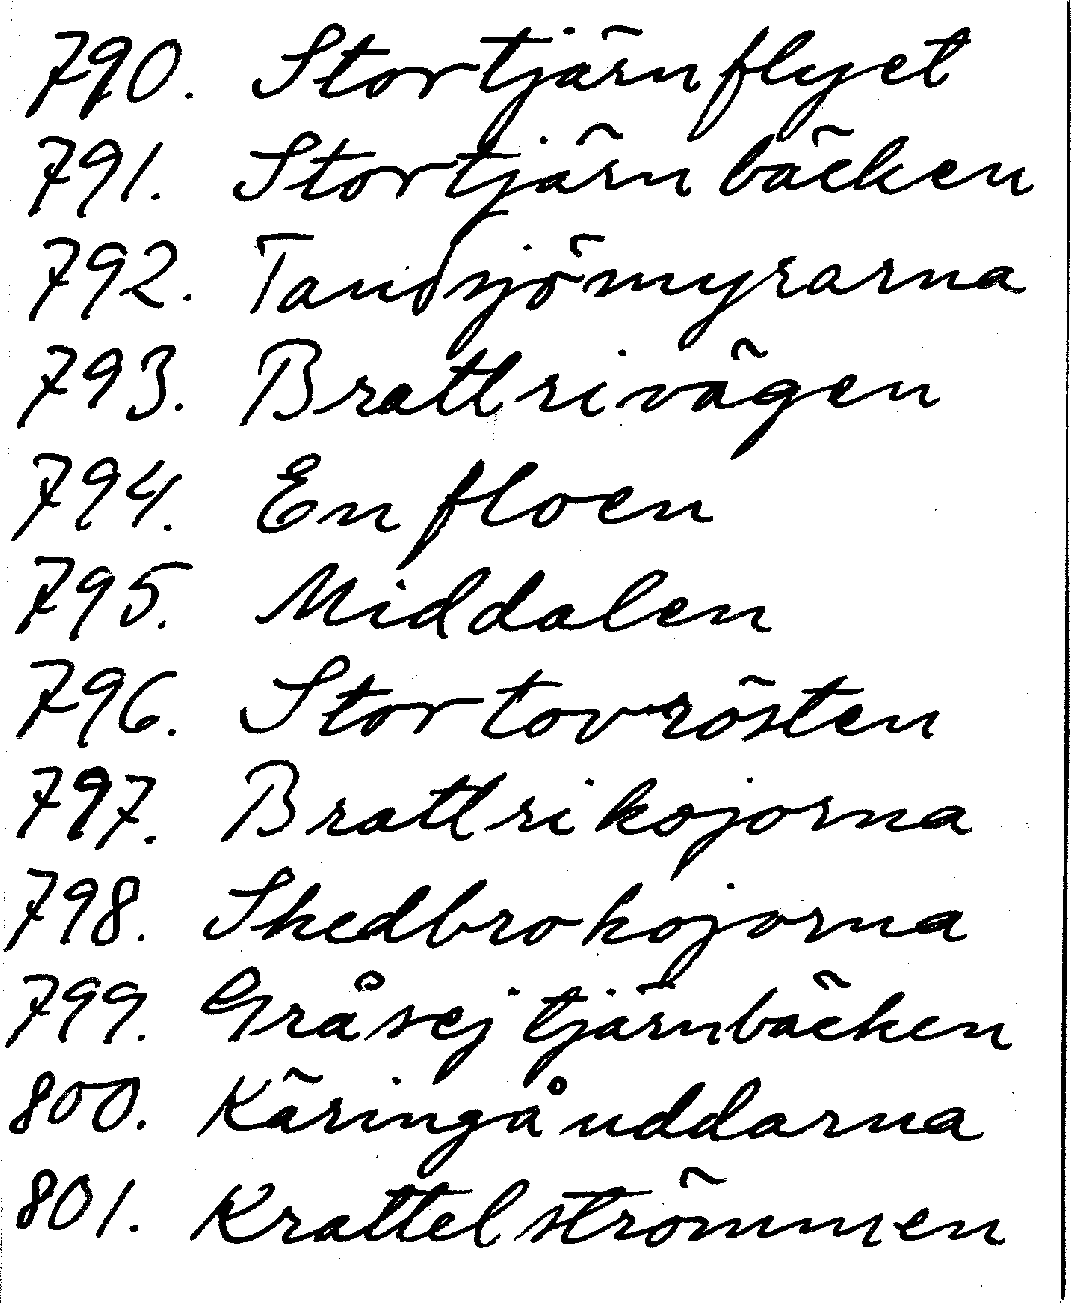 790. Stortjärnflyet
791. Stortjärnbäcken
792. Tandsjömyrarna
793. Brattrivägen
794. Enfloen
795. Middalen
796. Stortovrösten
797. Brattrikojorna
798. Skedbrokojorna
799. Gråsejtjärnbäcken
800. Käringåuddarna
801. Krattelströmmen